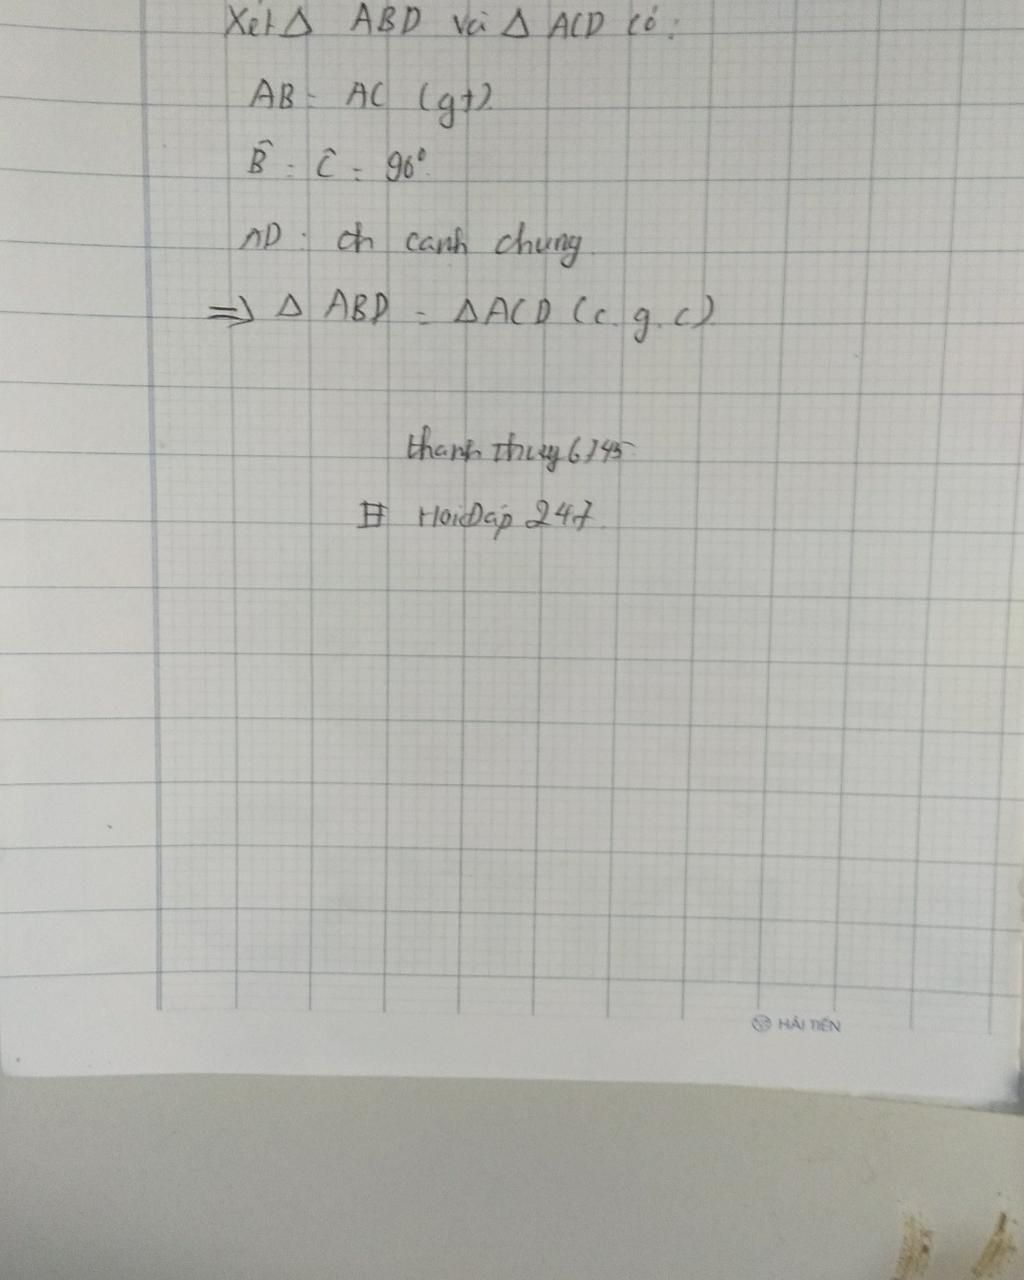 Xét Δ ABD và Δ ACD có:
AB = AC (gt)
B̂ = Ĉ = 90°
AD : ch canh chung
=> Δ ABD = Δ ACD (c.g.c)
thanh thuy 6745
# HoiDap 247
HẢI TIẾN